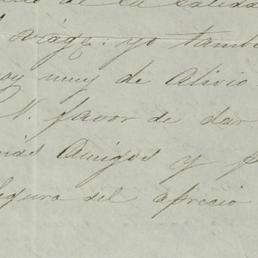 de la salida
viage. yo tambi
oy muy de alivio
N. favor de dar
mis Amigos y p
segura del aprecio